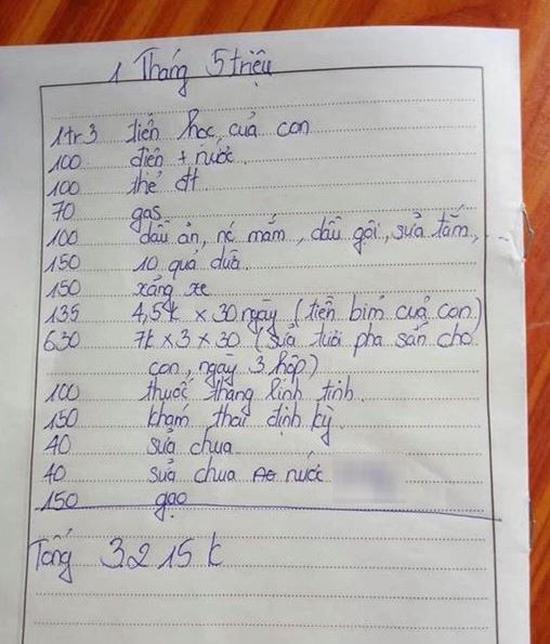 1 Tháng 5 triệu
1tr3 tiền học của con
100 điện + nước
100 thẻ đt
70 gas
100 dầu ăn, nc mắm, dầu gội, sửa tắm, ...
150 10 quả dừa
150 xăng xe
135 4,5k x 30 ngày (tiền bỉm của con)
630 7k x 3 x 30 (sửa tươi pha sẵn cho
con, ngày 3 hộp)
100 thuốc thang linh tinh.
150 khám thai định kỳ
40 sửa chua
40 sửa chua nước
150 gạo
Tổng 3215k